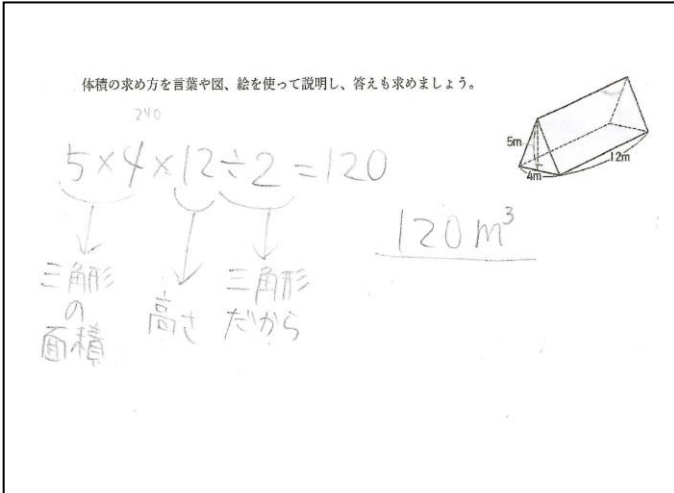 体積の求め方を言葉や図、絵を使って説明し、答えも求めましょう。
240
5×4×12÷2=120
5m
4m
12m
120m³
三角形の面積
高さ
三角形だから